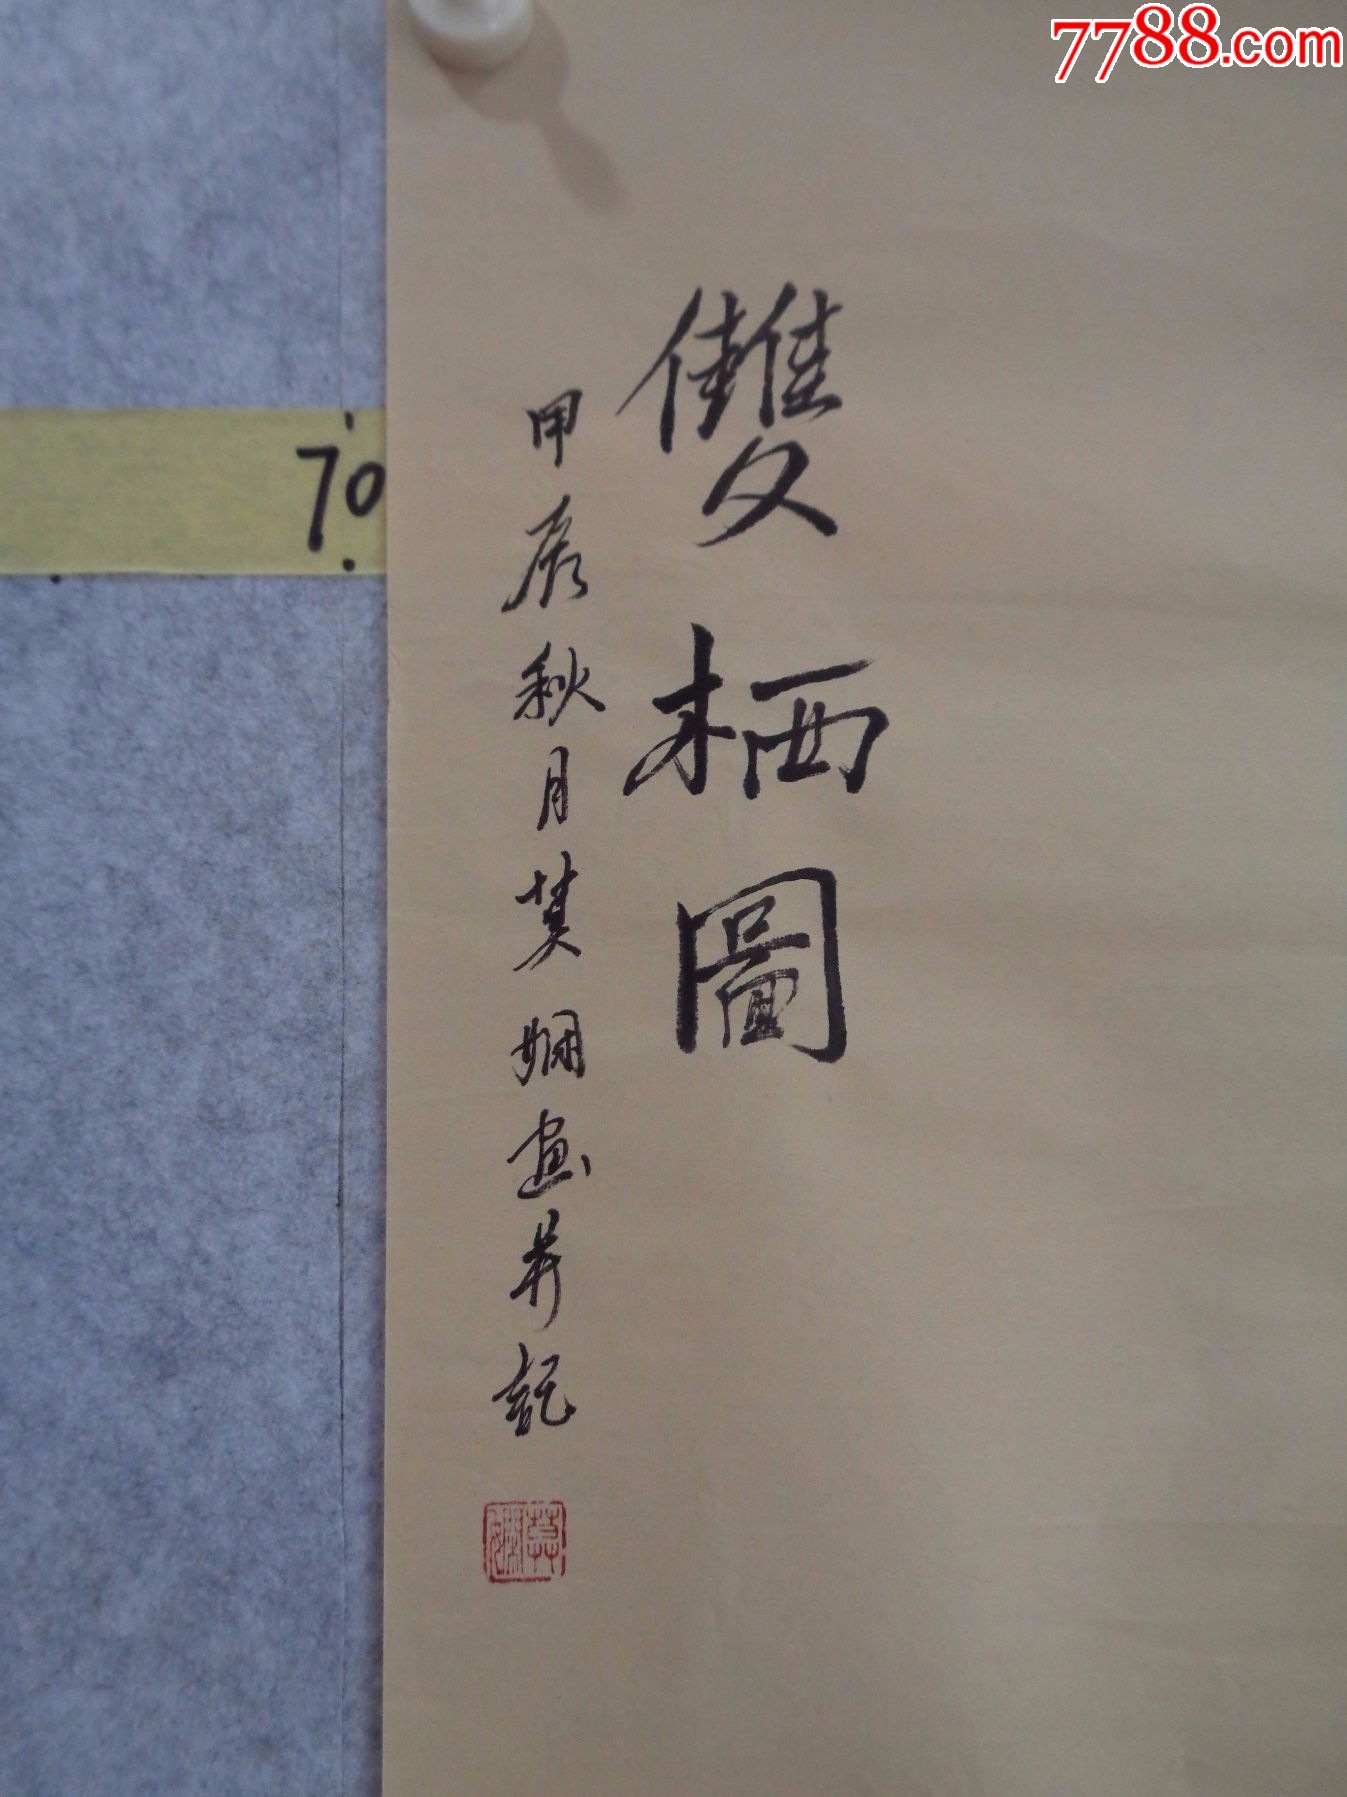 7788.com
雙栖圖
甲辰秋月莫嫻画并記
70